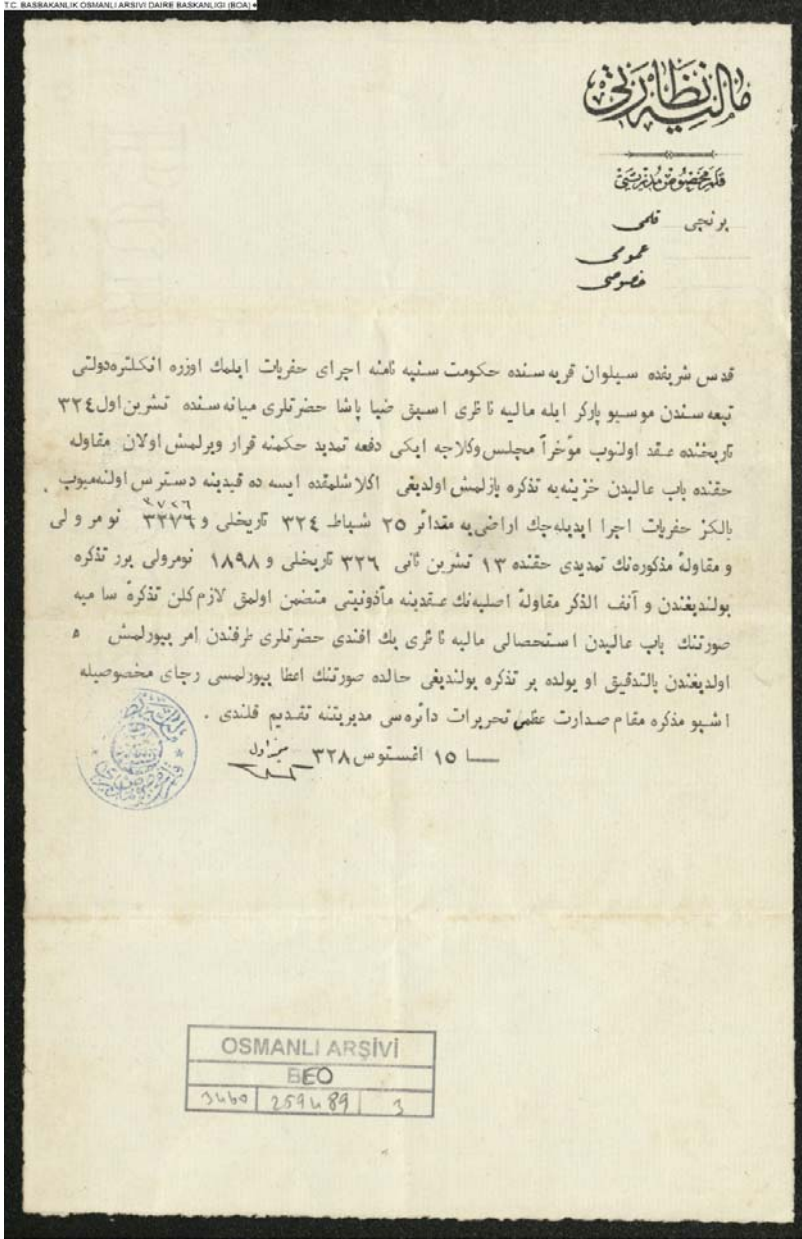 T.C. BASBAKANLIK OSMANLI ARSIVI DAIRE BASKANLIGI (BOA)
مالیه نظارتی
قلم مخصوص مدیریتی
برنجی قلمی
عمومی
خصوصی
قدس شریفده سیلوان قریه سنده حکومت سنیه نامنه اجرای حفریات ایلمك اوزره انکلتره دولتی
تبعه سندن موسیو پارکر ایله مالیه ناظری اسبق ضیا پاشا حضرتلری میانه سنده تشرین اول ٣٢٤
تاریخنده عقد اولنوب مؤخراً مجلس وکلاجه ایکی دفعه تمدید حکمنه قرار ویرلمش اولان مقاوله
حقنده باب عالیدن خزینه یه تذکره یازلمش اولدیغی اکلاشلمقده ایسه ده قیدینه دسترس اولنه میوب .
یالکز حفریات اجرا ایدیله جك اراضی یه مقدائر ٢٥ شباط ٣٢٤ تاریخلی و ٣٢٧٦ ٣٧٢٦ نومرولی
و مقاولهٔ مذکوره نك تمدیدی حقنده ١٣ تشرین ثانی ٣٢٦ تاریخلی و ١٨٩٨ نومرولی برر تذکره
بولندیغندن و آنف الذکر مقاولهٔ اصلیه نك عقدینه مأذونیتی متضمن اولمق لازم کلن تذکرهٔ سامیه
صورتنك باب عالیدن استحصالی مالیه ناظری بك افندی حضرتلری طرفندن امر بیورلمش ه
اولدیغندن بالتدقیق او یولده بر تذکره بولندیغی حالده صورتنك اعطا بیورلمسی رجای مخصوصیله
اشبو مذکره مقام صدارت عظمی تحریرات دائره سی مدیریتنه تقدیم قلندی .
١٥ اغستوس ٣٢٨
OSMANLI ARŞİVİ
BEO
3460 259489 3